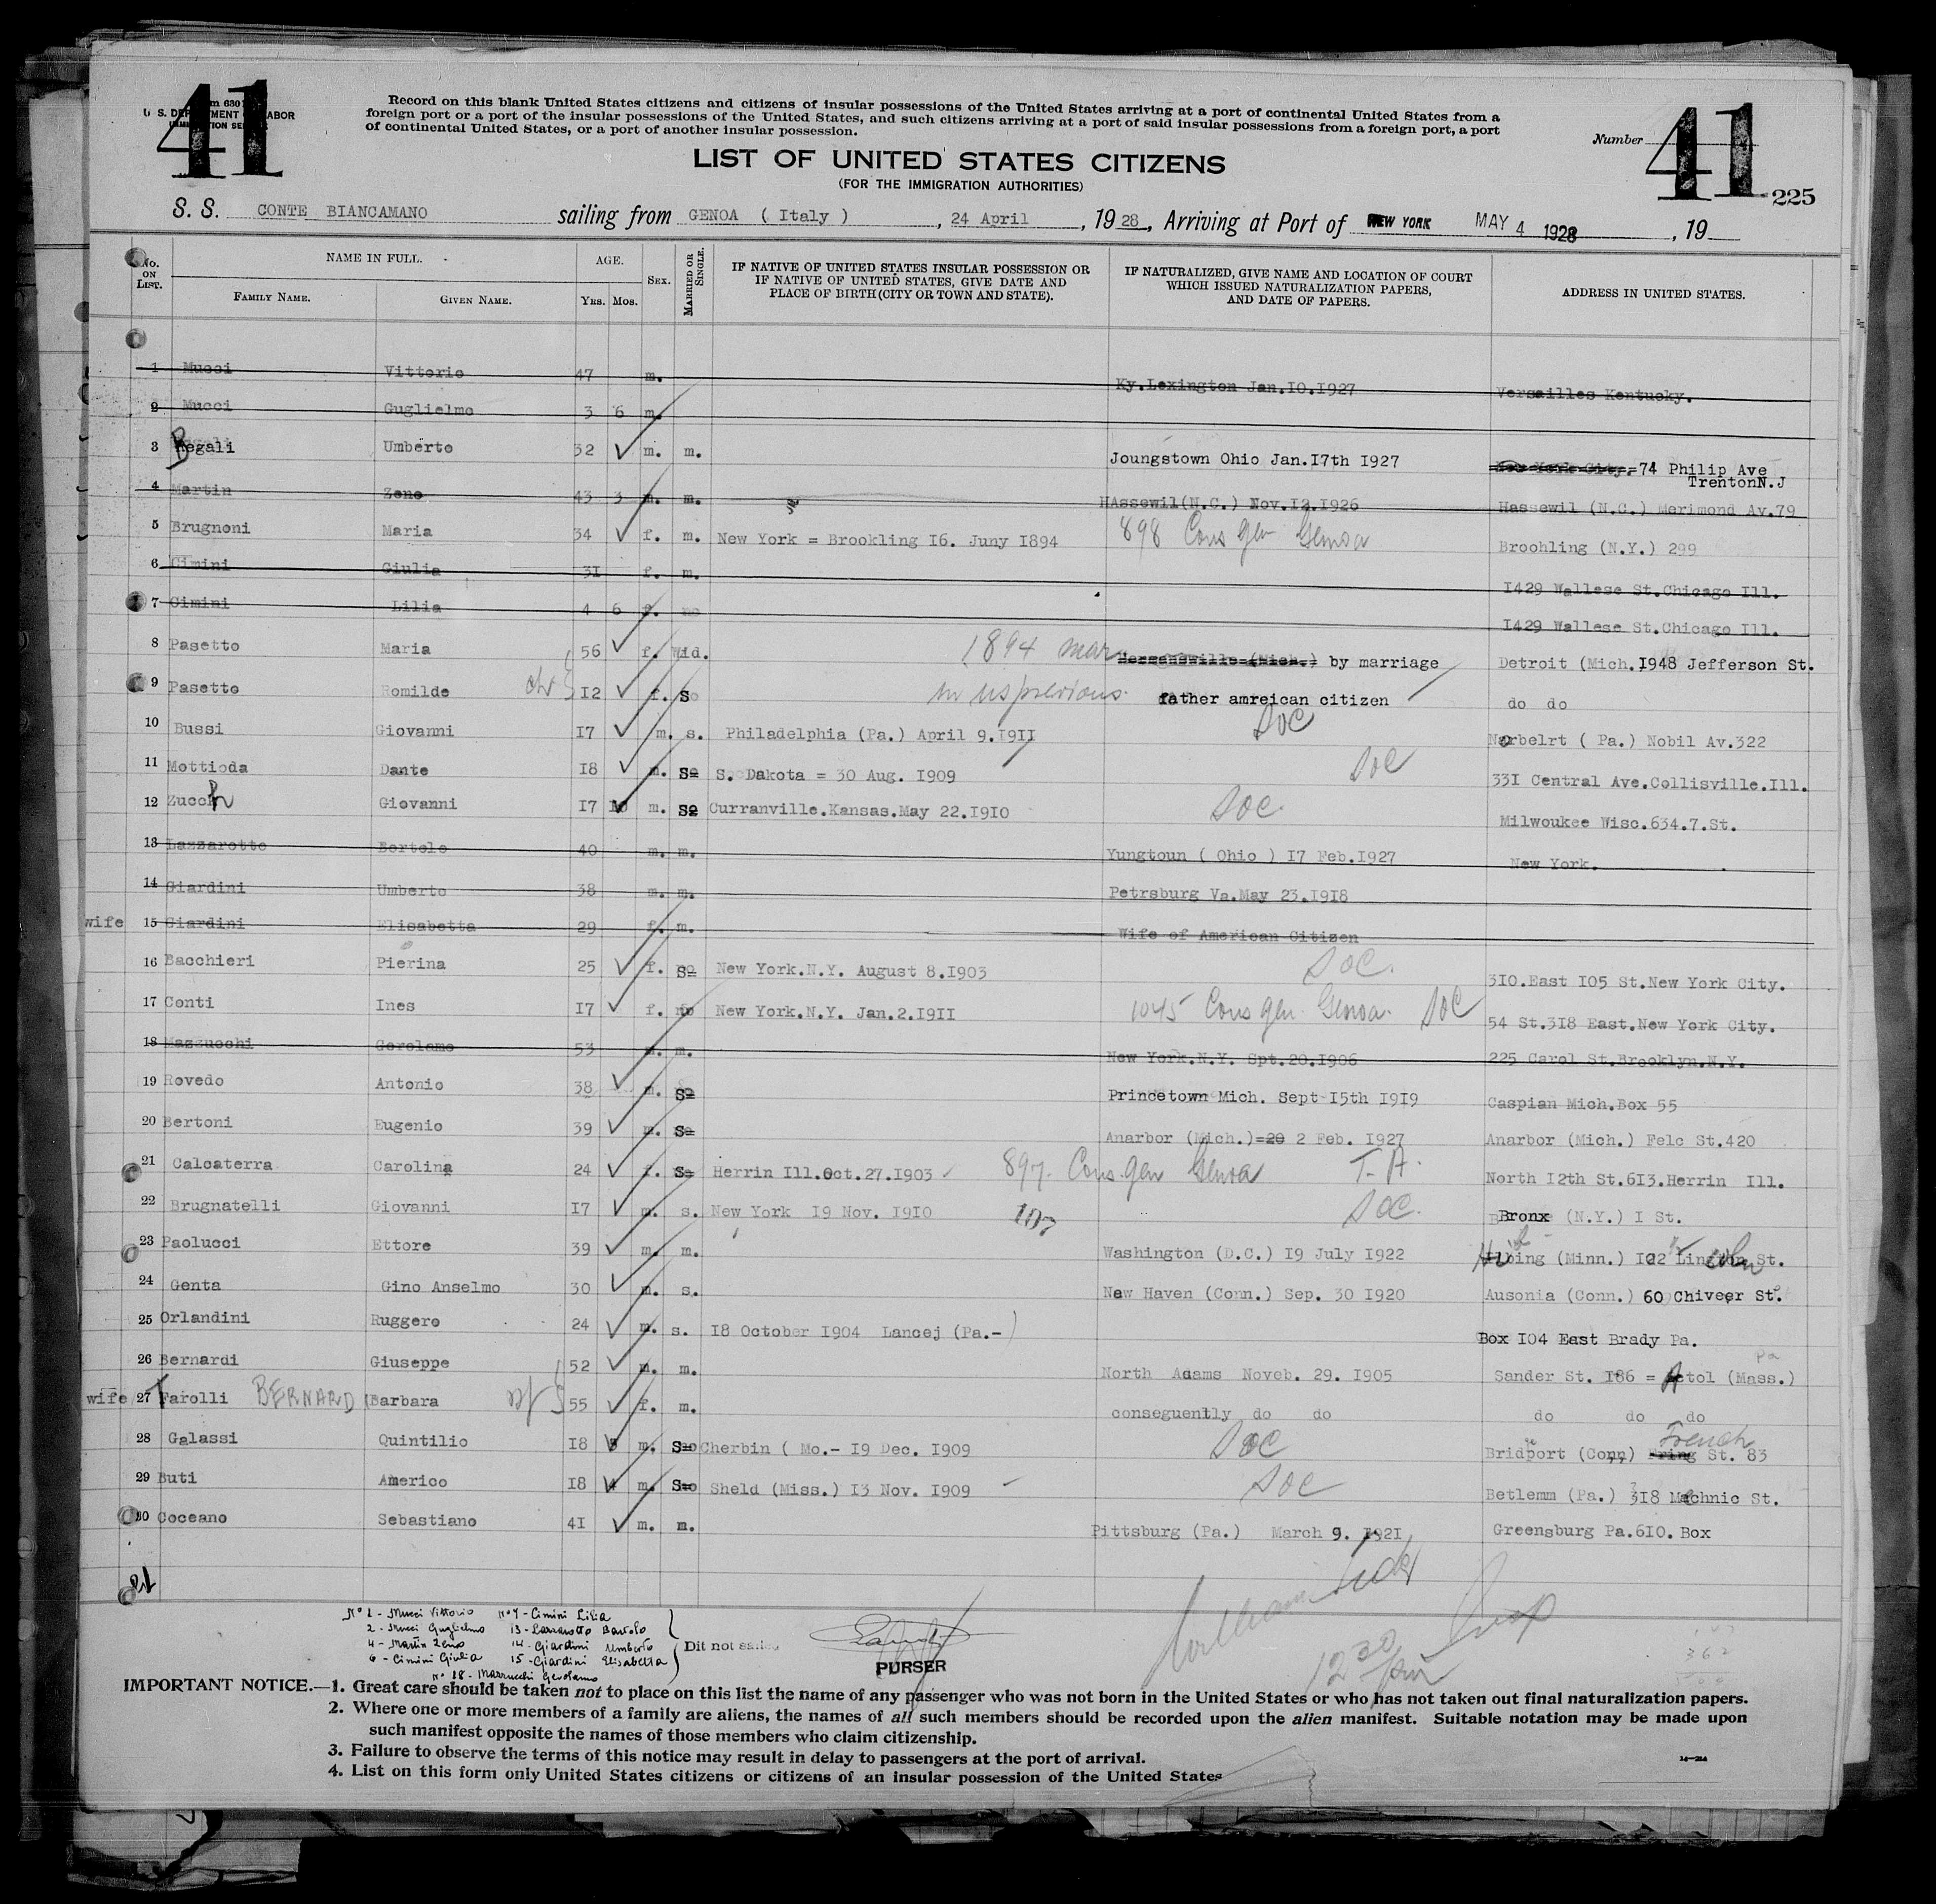 41
41
Form 630
U. S. DEPARTMENT OF LABOR
IMMIGRATION SERVICE
Record on this blank United States citizens and citizens of insular possessions of the United States arriving at a port of continental United States from a
foreign port or a port of the insular possessions of the United States, and such citizens arriving at a port of said insular possessions from a foreign port, a port
of continental United States, or a port of another insular possession.
Number
225
LIST OF UNITED STATES CITIZENS
(FOR THE IMMIGRATION AUTHORITIES)
S. S. CONTE BIANCAMANO sailing from GENOA ( Italy ) , 24 April , 19 28, Arriving at Port of NEW YORK MAY 4 1928 , 19
No. ON LIST. NAME IN FULL. FAMILY NAME. GIVEN NAME. AGE. YRS. MOS. SEX. MARRIED OR SINGLE. IF NATIVE OF UNITED STATES INSULAR POSSESSION OR IF NATIVE OF UNITED STATES, GIVE DATE AND PLACE OF BIRTH (CITY OR TOWN AND STATE). IF NATURALIZED, GIVE NAME AND LOCATION OF COURT WHICH ISSUED NATURALIZATION PAPERS, AND DATE OF PAPERS. ADDRESS IN UNITED STATES.
1 Mucci Vittorio 47 m. Ky.Lexington Jan.10.1927 Versailles Kentucky.
2 Mucci Guglielmo 3 6 m.
3 Begali Umberto 32 m. m. Joungstown Ohio Jan.17th 1927 New York City.=74 Philip Ave
TrentonN.J
4 Martin Zeno 43 3 m. m. HAssewil(N.C.) Nov.12.1926 Hassewil (N.C.) Merimond Av.79
5 Brugnoni Maria 34 f. m. New York = Brookling 16. Juny 1894 898 Cons gen Genoa Broohling (N.Y.) 299
6 Cimini Giulia 31 f. m. 1429 Wallese St.Chicago Ill.
7 Cimini Lilia 4 6 f. no 1429 Wallese St.Chicago Ill.
8 Pasetto Maria 56 f. Wid. 1894 mar by marriage Detroit (Mich.1948 Jefferson St.
9 Pasetto Romilde 12 f. S in us previous father amreican citizen do do
10 Bussi Giovanni 17 m. s. Philadelphia (Pa.) April 9.1911 SOC Norbelrt ( Pa.) Nobil Av.322
11 Mottioda Dante 18 m. S S. Dakota = 30 Aug. 1909 SOC 331 Central Ave.Collisville.Ill.
12 Zucch Giovanni 17 10 m. S Curranville.Kansas.May 22.1910 SOC. Milwoukee Wisc.634.7.St.
13 Lazzarotto Bortolo 40 m. m. Yungtoun ( Ohio ) 17 Feb.1927 New York.
14 Giardini Umberto 38 m. m. Petrsburg Va.May 23.1918
wife 15 Giardini Elisabetta 29 f. m. Wife of American Citizen
16 Bacchieri Pierina 25 f. S New York.N.Y. August 8.1903 SOC. 310.East 105 St.New York City.
17 Conti Ines 17 f. no New York.N.Y. Jan.2.1911 1045 Cons gen. Genoa. SOC 54 St.318 East.New York City.
18 Mazzucchi Gerolamo 53 m. m. New York.N.Y. Spt.20.1906 225 Carol St.Brooklyn.N.Y.
19 Rovedo Antonio 38 m. S Princetown Mich. Sept 15th 1919 Caspian Mich.Box 55
20 Bertoni Eugenio 39 m. S Anarbor (Mich.)=20 2 Feb. 1927 Anarbor (Mich.) Felc St.420
21 Calcaterra Carolina 24 f. S Herrin Ill.Oct.27.1903 897. Cons. gen Genoa T.A. North 12th St.613.Herrin Ill.
22 Brugnatelli Giovanni 17 m. s. New York 19 Nov. 1910 SOC. Bronx (N.Y.) 1 St.
23 Paolucci Ettore 39 m. m. Washington (D.C.) 19 July 1922 (Minn.) St.
24 Genta Gino Anselmo 30 m. s. New Haven (Conn.) Sep. 30 1920 Ausonia (Conn.) 60 Chiveer St.
25 Orlandini Ruggero 24 m. s. 18 October 1904 Lancej (Pa.-) Box 104 East Brady Pa.
26 Bernardi Giuseppe 52 m. m. North Adams Noveb. 29. 1905 Sander St. 186 = Atol (Mass.)
wife 27 Tarolli BERNARDI Barbara 55 f. m. conseguently do do do do do
28 Galassi Quintilio 18 m. S Cherbin ( Mo.- 19 Dec. 1909 SOC Bridport (Conn) French St. 83
29 Buti Americo 18 4 m. S Sheld (Miss.) 13 Nov. 1909 SOC Betlemm (Pa.) 318 Mechnic St.
30 Coceano Sebastiano 41 m. m. Pittsburg (Pa.) March 9. 1921 Greensburg Pa.610. Box
21
Nº 1 - Mucci Vittorio Nº 7 - Cimini Lilia
2 - Mucci Guglielmo 13 - Lazzarotto Bortolo
4 - Martin Zeno 14 - Giardini Umberto
6 - Cimini Giulia 15 - Giardini Elisabetta
Nº 18 - Mazzucchi Gerolamo
Dit not sailed
PURSER
12 30 pm
Insp
362
IMPORTANT NOTICE.—1. Great care should be taken not to place on this list the name of any passenger who was not born in the United States or who has not taken out final naturalization papers.
2. Where one or more members of a family are aliens, the names of all such members should be recorded upon the alien manifest. Suitable notation may be made upon
such manifest opposite the names of those members who claim citizenship.
3. Failure to observe the terms of this notice may result in delay to passengers at the port of arrival.
4. List on this form only United States citizens or citizens of an insular possession of the United States
14—214